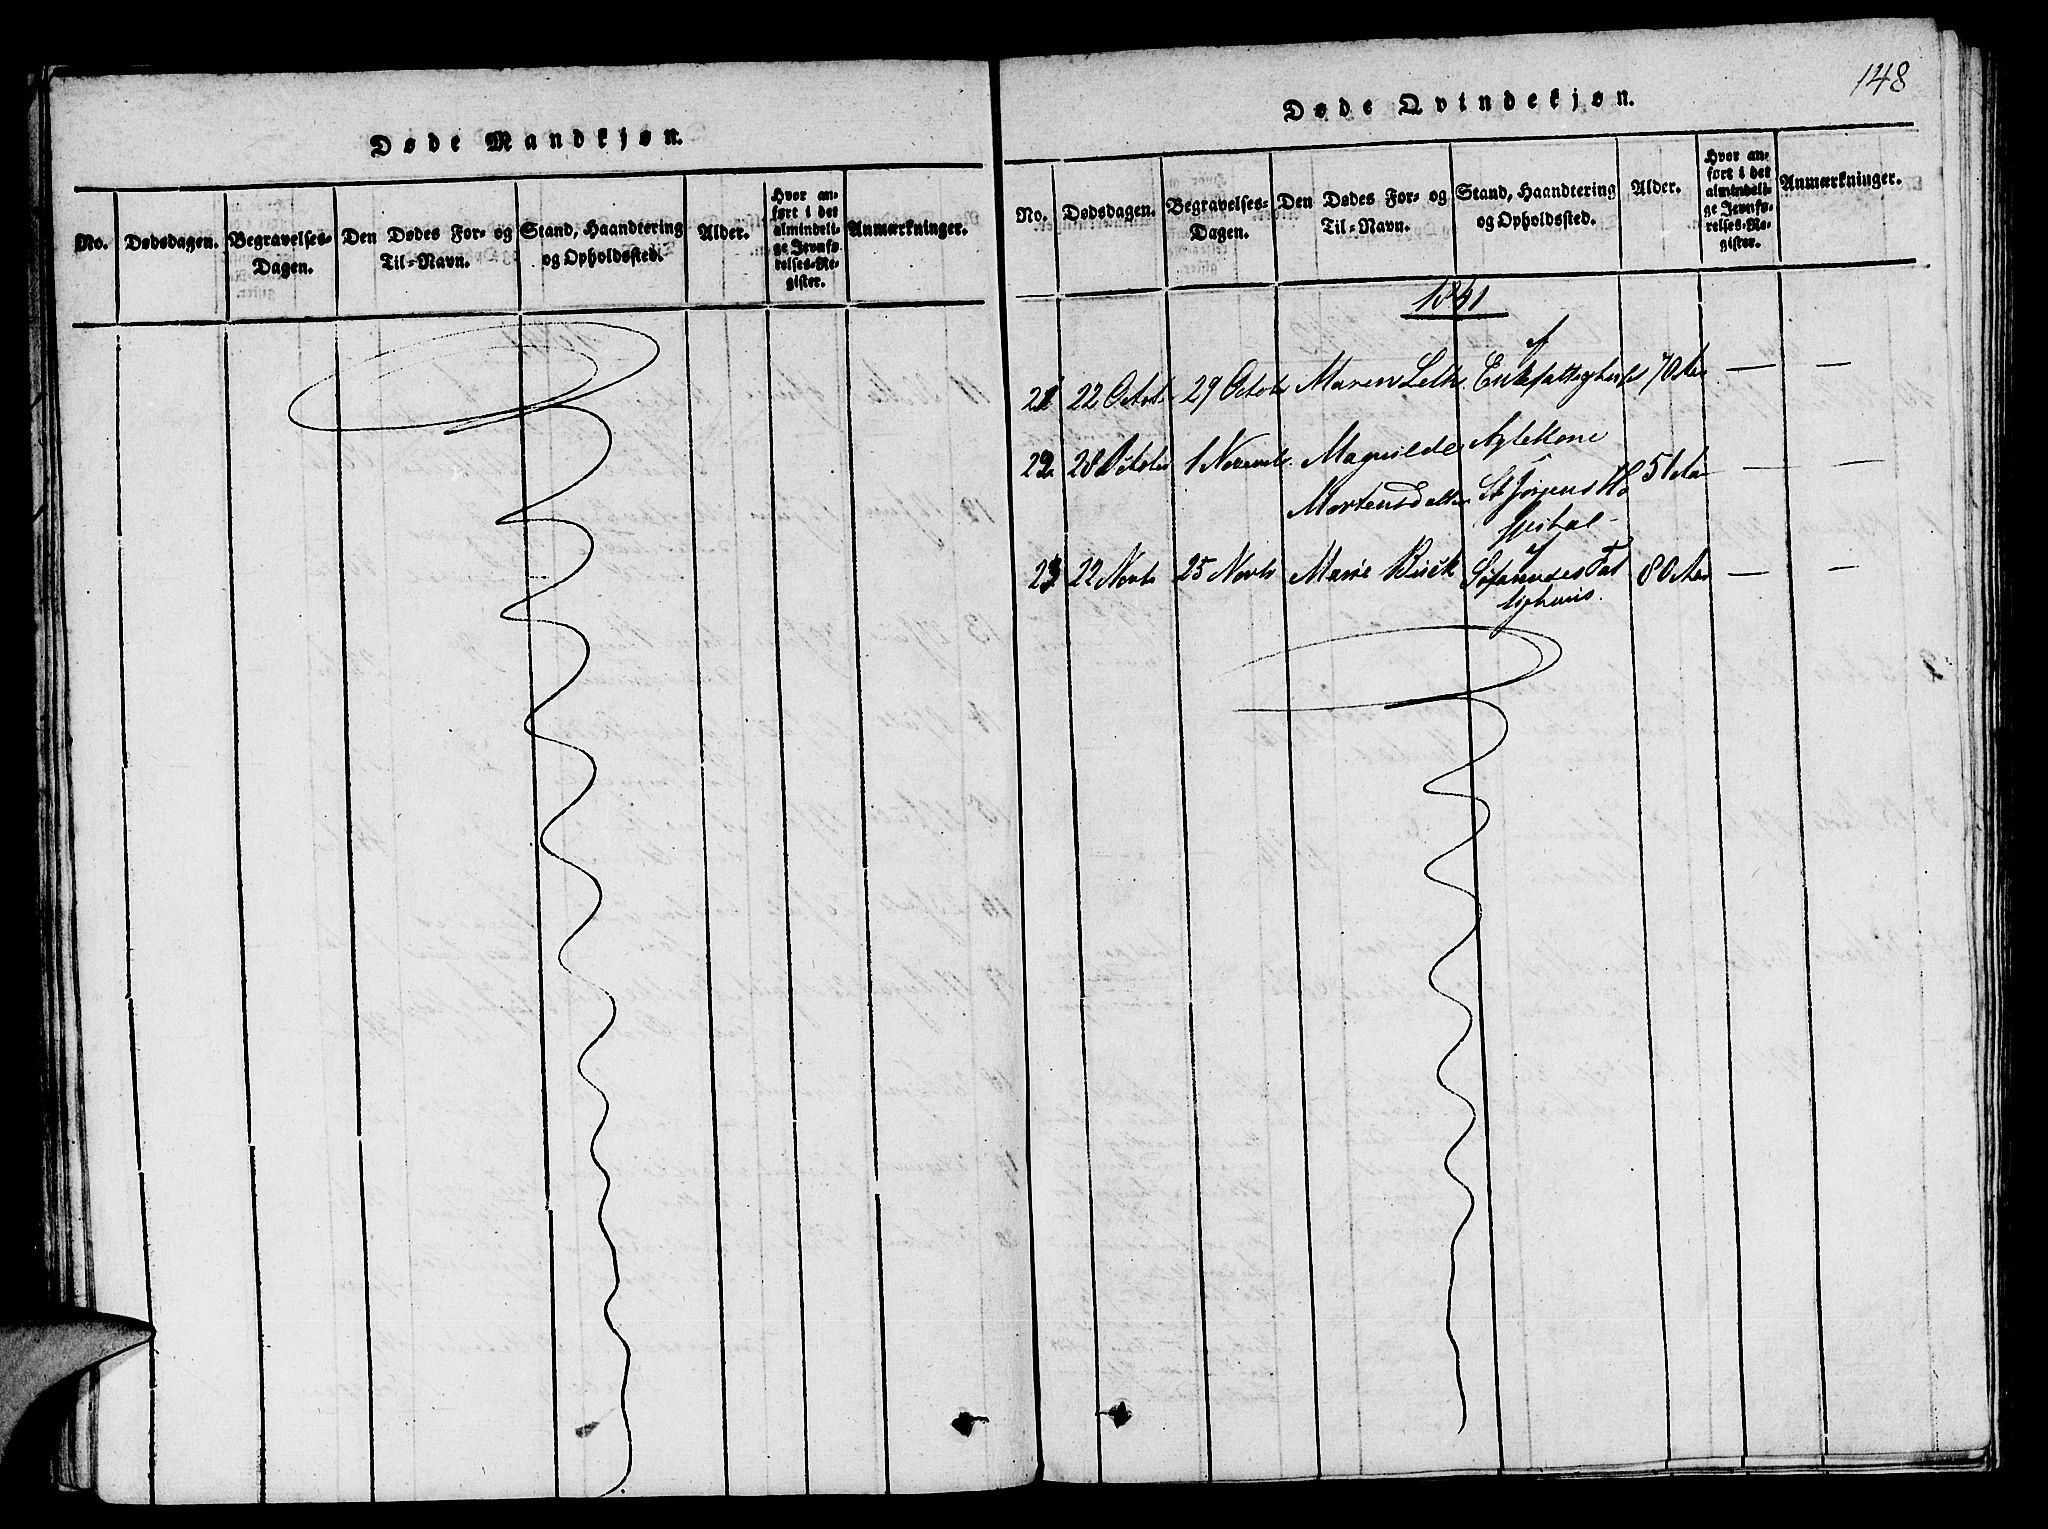 148
Døde Mandkjøn.
No.
Dødsdagen.
Begravelses-
Dagen.
Den Dødes For- og
Til-Navn.
Stand, Haandtering
og Opholdssted.
Alder.
Hvor an-
ført i det
almindeli-
ge Jevnfø-
relses-Re-
gister.
Anmærkninger.
Døde Qvindekjøn.
No.
Dødsdagen.
Begravelses-
Dagen.
Den Dødes For- og
Til-Navn.
Stand, Haandtering
og Opholdssted.
Alder.
Hvor an-
ført i det
almindeli-
ge Jevnfø-
relses-Re-
gister.
Anmærkninger.
1841
21 22 Octob 29 Octob Maren 70 Aar — —
22 28 Octob 1 Novemb. Magnilde Ægtekone 51 Aar — —
Mortensdatter St Jørgens Ho
spital
23 22 Novb 25 Novb Marie Buck Søfarendes Fat 80 Aar — —
tighuus.